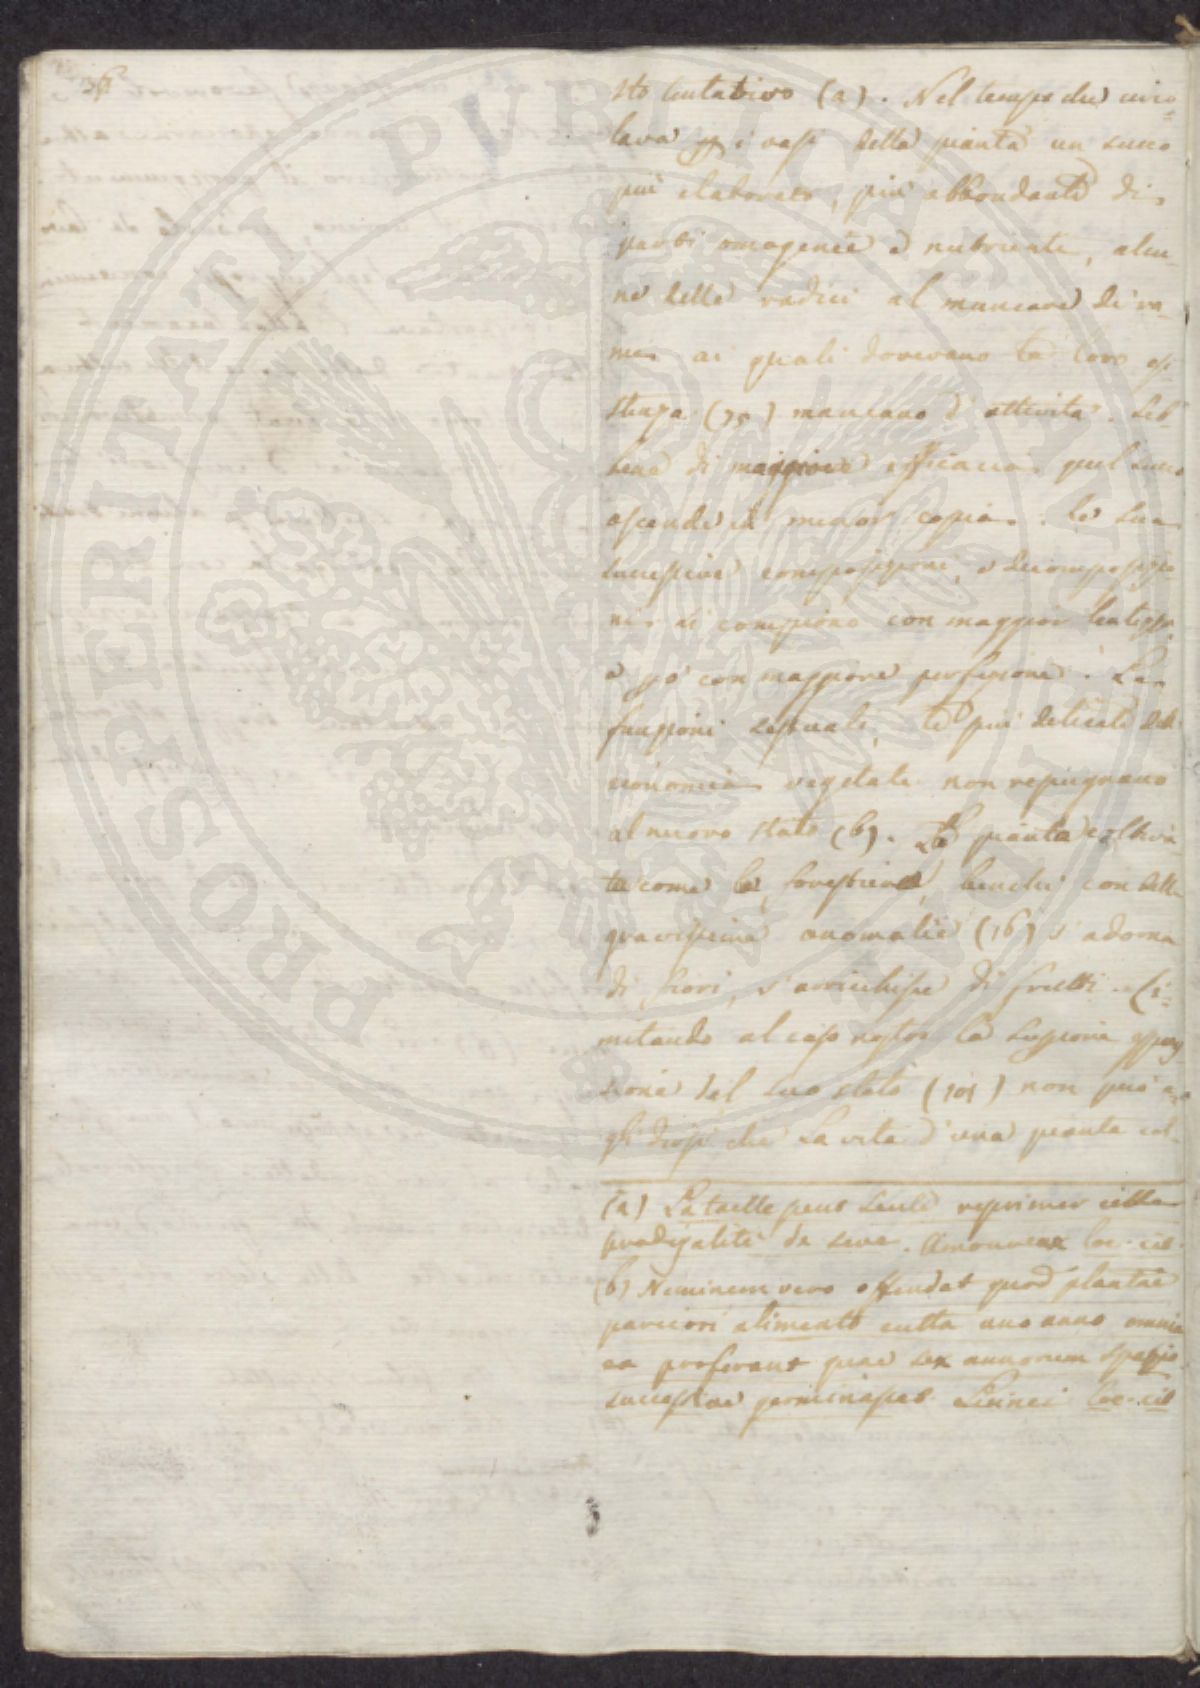 36
sto tentativo (a). Nel tempo che circo=
lava i vasi della pianta un succo
più elaborato, più abbondante di
parti omogenee e nutriente, alcu-
ne delle radici al mancare di ra-
mi ai quali dovevano la loro esi-
stenza (35) mancano d'attività. Seb
bene di maggiore efficacia quel succo
ascende in minor copia. Le sue
successive composizioni, e decomposizio
ni si compiono con maggior lentezza,
e con maggiore perfezione. Le
funzioni sessuali, le più delicate dell'
economia vegetale non repugnano
al nuovo stato (b). La pianta coltiva
ta come la forestiera, benchè con delle
gravissime anomalie (16) s'adorna
di fiori, s'arricchisce di frutti. Li=
mitando al caso nostro la
del suo stato (101) non può
che la vita d'una pianta col-
(a) La taille peut seule reprimer cette
prodigalité de seve. Amoureux loc. cit.
(b) Neminem vero offendat quod plantae
parciori alimento culta uno anno omnia
ea proferant quae sex annorum spazio
successive germinasset Linnei loc. cit
PROSPERITATI PUBLICAE AUGENDAE